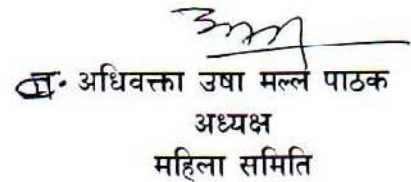 अधिवक्ता उषा मल्ल पाठक
अध्यक्ष
महिला समिति